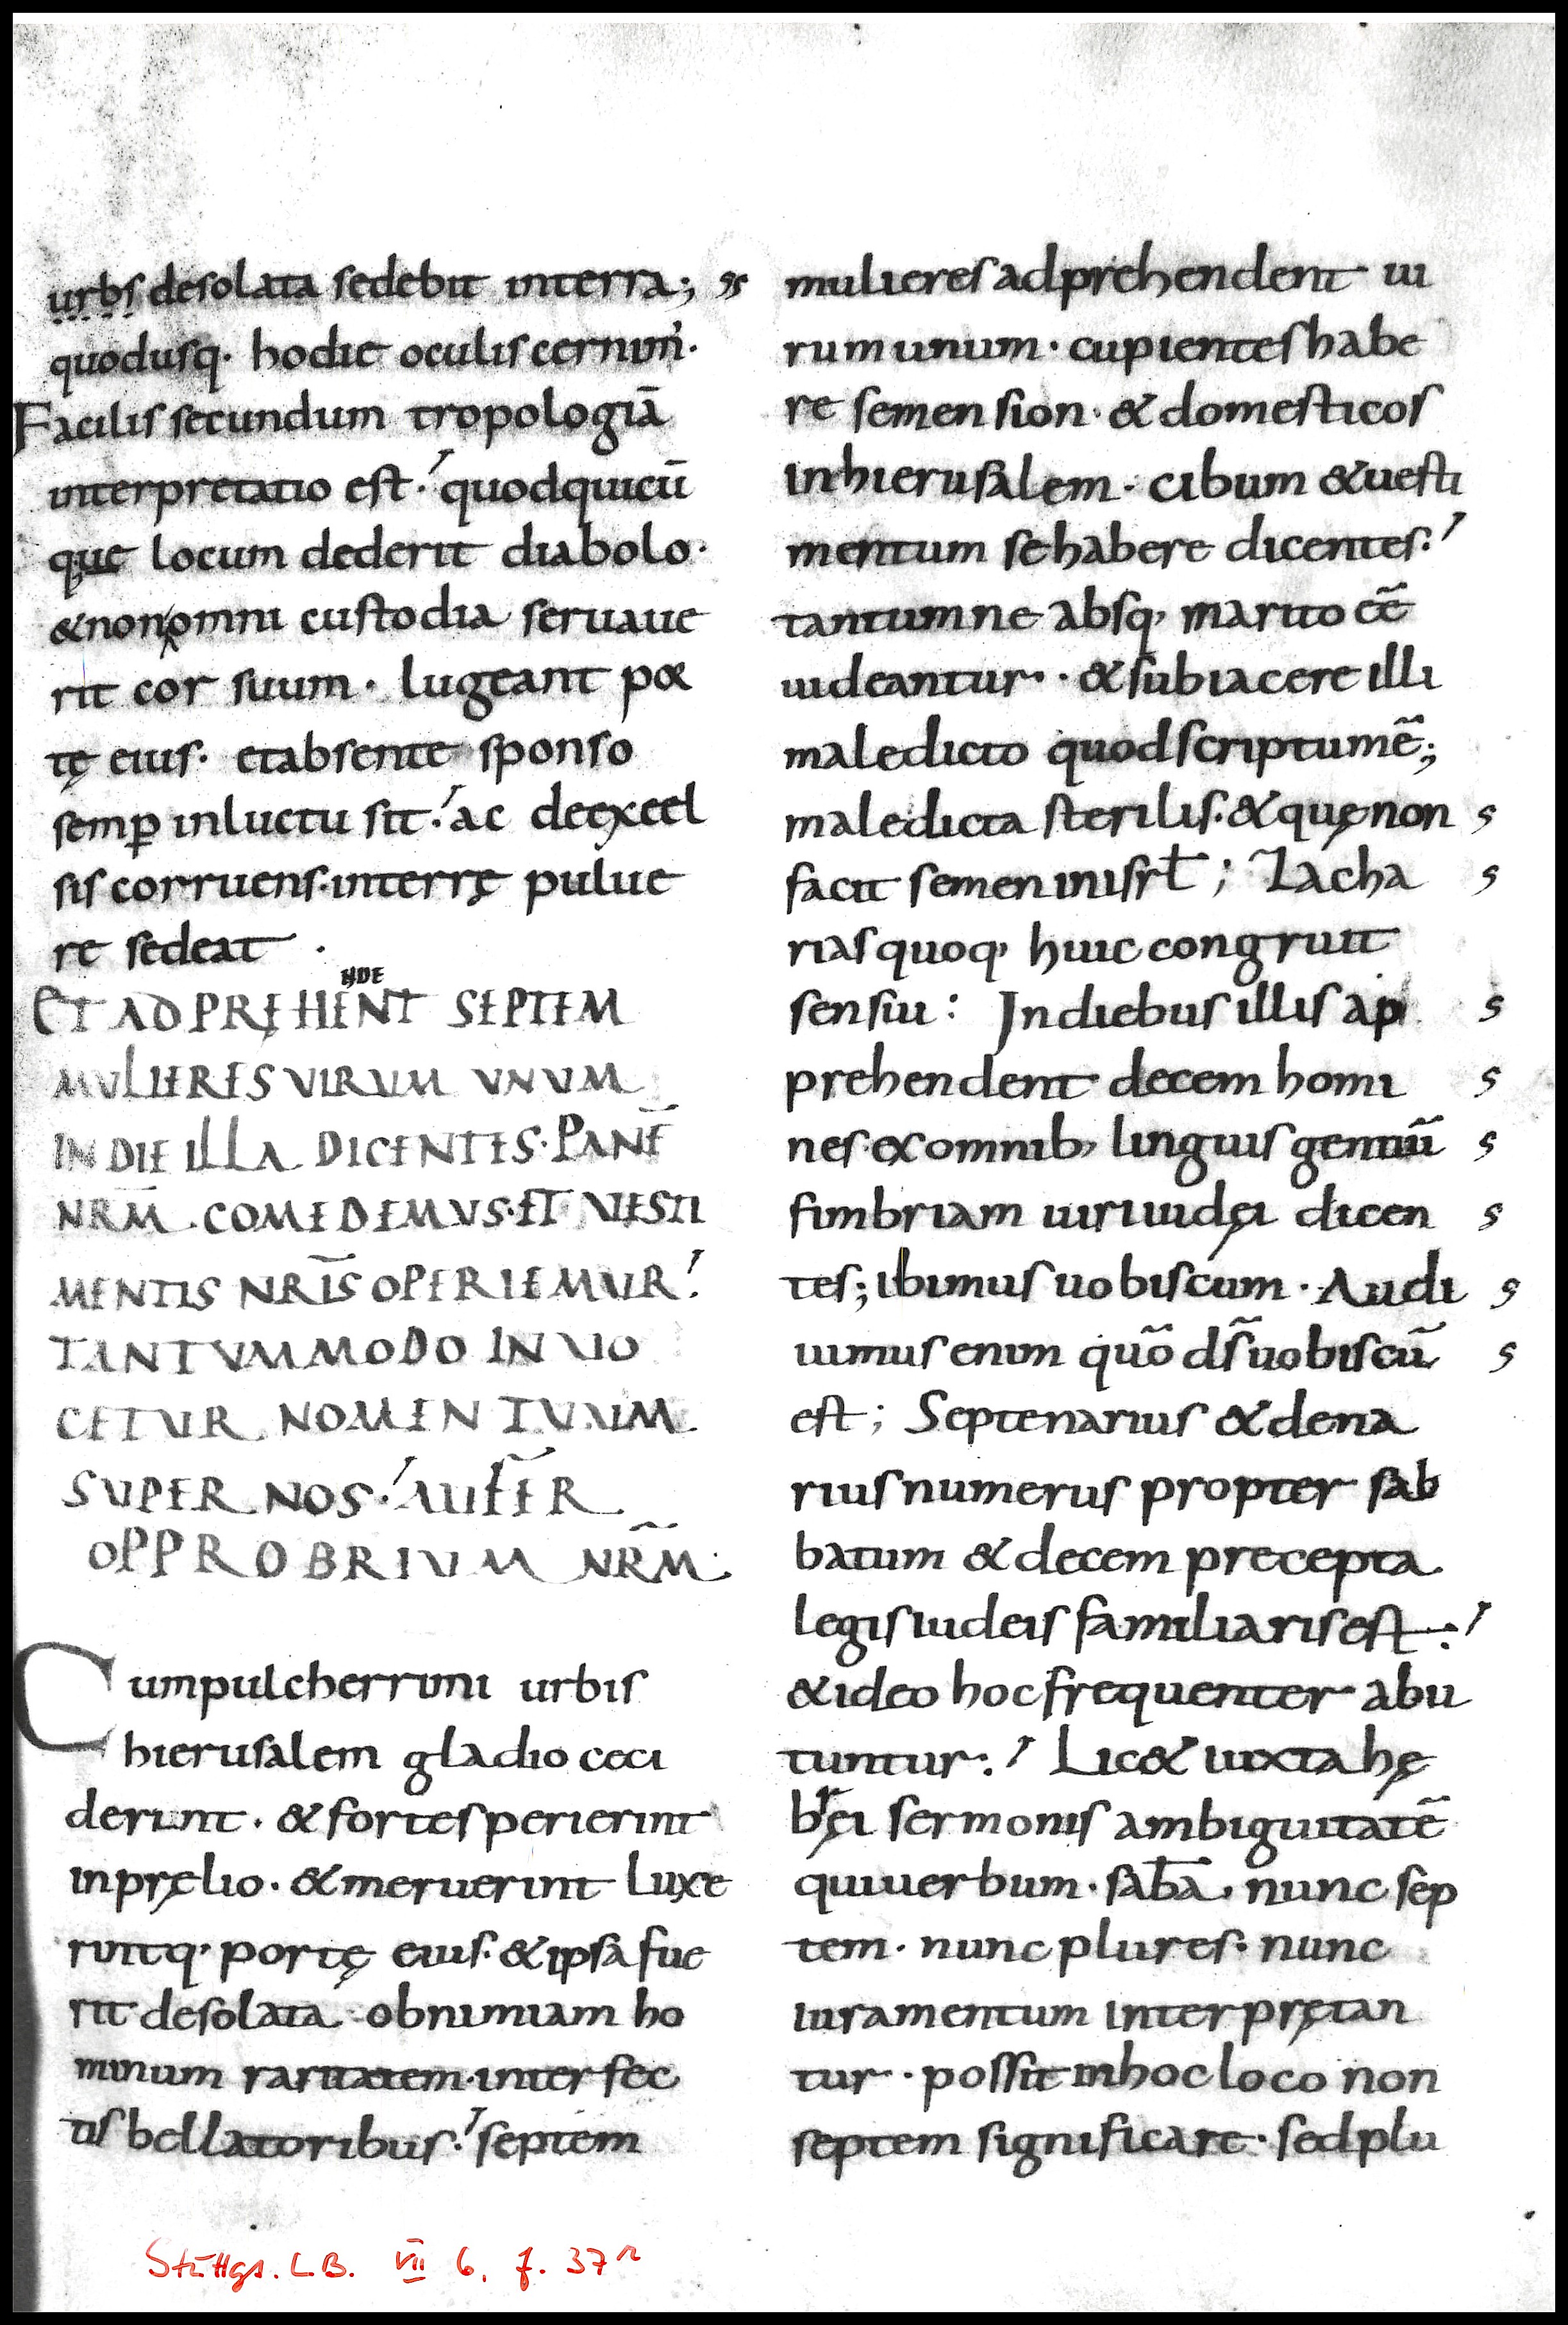 urbs desolata sedebit interra; ss
quodusq· hodie oculis cernim'·
Facilis secundum tropologiā
interpretatio est·' quodquicū
que locum dederit diabolo·
&non omni custodia seruaue
rit cor suum· lugeant por
tę eius· etabsente sponso
semꝑ inluctu sit·' ac deexcel
sis corruens· interrę pulue
re sedeat ·
NDE
ET ADPRĘHENT SEPTEM
MULIERES VIRUM VNVM
IN DIE ILLA DICENTES· PANĒ
NRM̄ · COMEDEMVS· ET VESTI
MENTIS NRĪS OPERIEMUR·'
TANTVMMODO INVO
CETUR NOMEN TUUM
SUPER NOS·' AUFER
OPPROBRIUM NRM̄·
Cumpulcherrimi urbis
hierusalem gladio ceci
derint· &fortesperierint
inpręlio· &meruerint luxe
rintq· portę eius· &ipsa fue
rit desolata obnimiam ho
minum raritatem· interfec
tis bellatoribus·' septem
mulieres adprehendent ui
rum unum· cupienteshabe
re semen sion· &domesticos
inhierusalem· cibum &uesti
mentum sehabere dicentes·'
tantumne absq· marito eē
uideantur· · &subiacere illi
maledicto quodscriptumē;
maledicta sterilis· &quęnon s
facit semen inisrł; Zacha s
riasquoq· huic congruit
sensui: Indiebus illis ap s
prehendent decem homi s
nes· exomnib; linguis gentiū s
fimbriam uiriiudęi dicen s
tes; ibimus uobiscum· Audi s
uimus enim quō ds̄ uobiscū s
est; Septenarius &dena
rius numerus propter sab
batum &decem precepta
legis iudeis familiaris est·'
&ideo hoc frequenter abu
tuntur·' Lic& iuxta hę
bręi sermonis ambiguitatē
quiuerbum· sab̄a· nunc sep
tem· nunc plures· nunc
iuramentum interprętan
tur· possit inhoc loco non
septem significare· sedplu
Stuttgt. L.B. VII 6, f. 37r